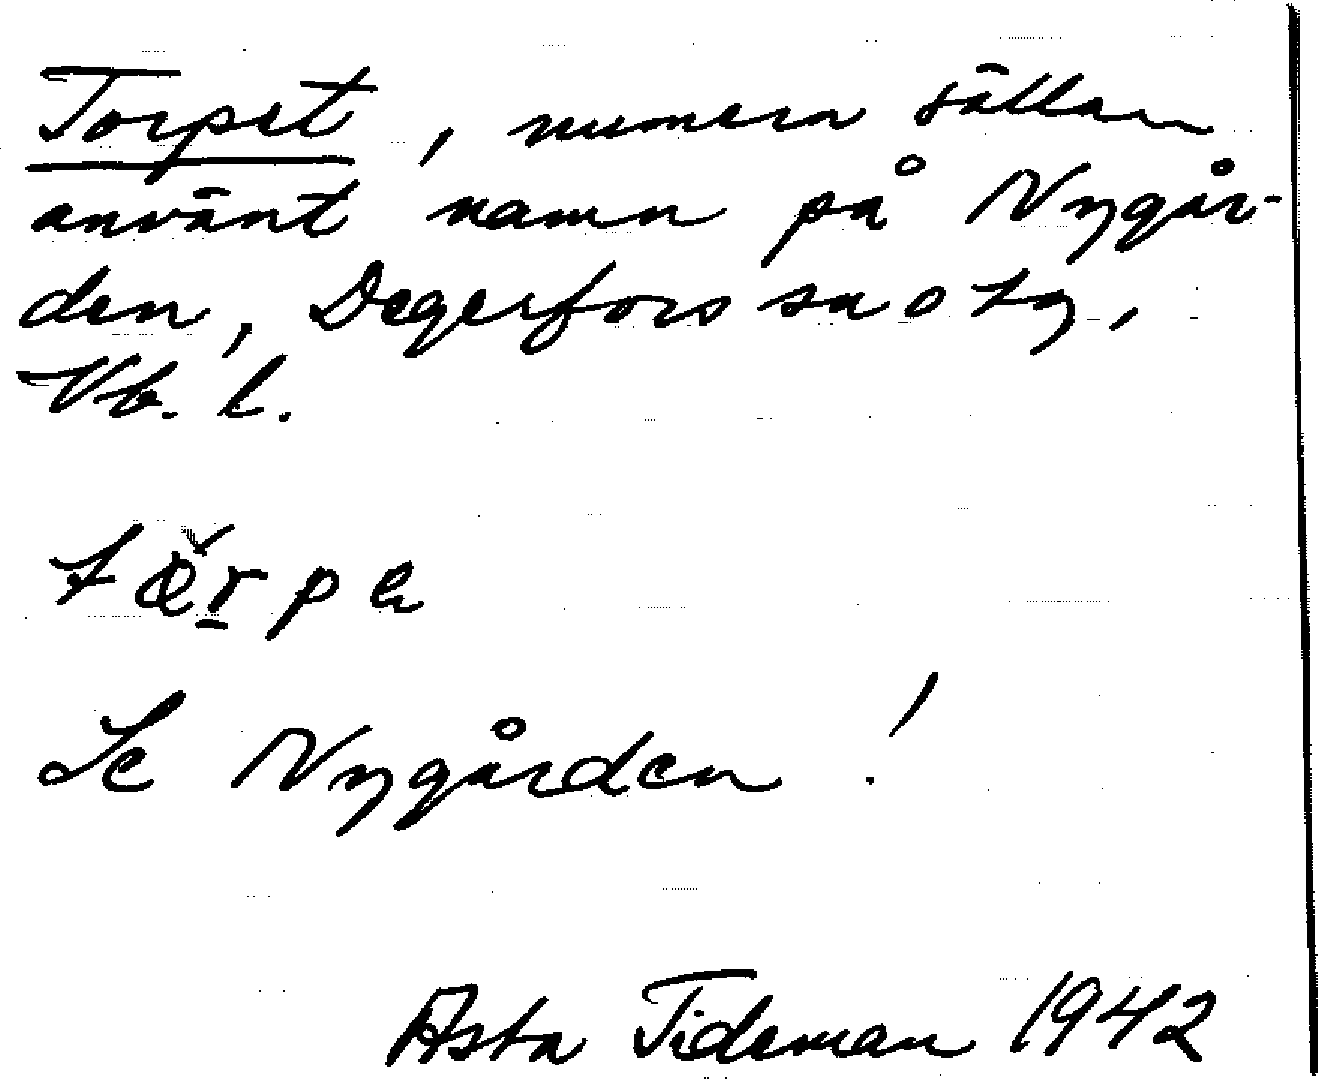 Torpet, numera sällan
använt namn på Nygår-
den, Degerfors sa o tg,
Vb. l.
Se Nygården!
Asta Tideman 1942